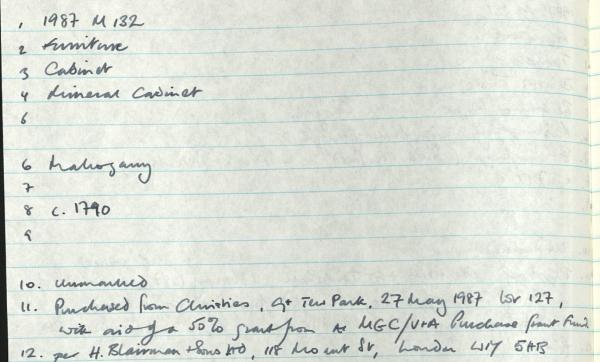 1 1987 M 132
2 Furniture
3 Cabinet
4 Mineral Cabinet
6
6 Mahogany
7
8 c. 1790
9
10. unmarked
11. Purchased from Christies, Gt Tew Park, 27 May 1987 lot 127,
with aid of a 50% grant from the MGC/V+A Purchase Grant Fund
12. per H. Blairman + Sons Ltd, 118 Mount St, London W1Y 5HB